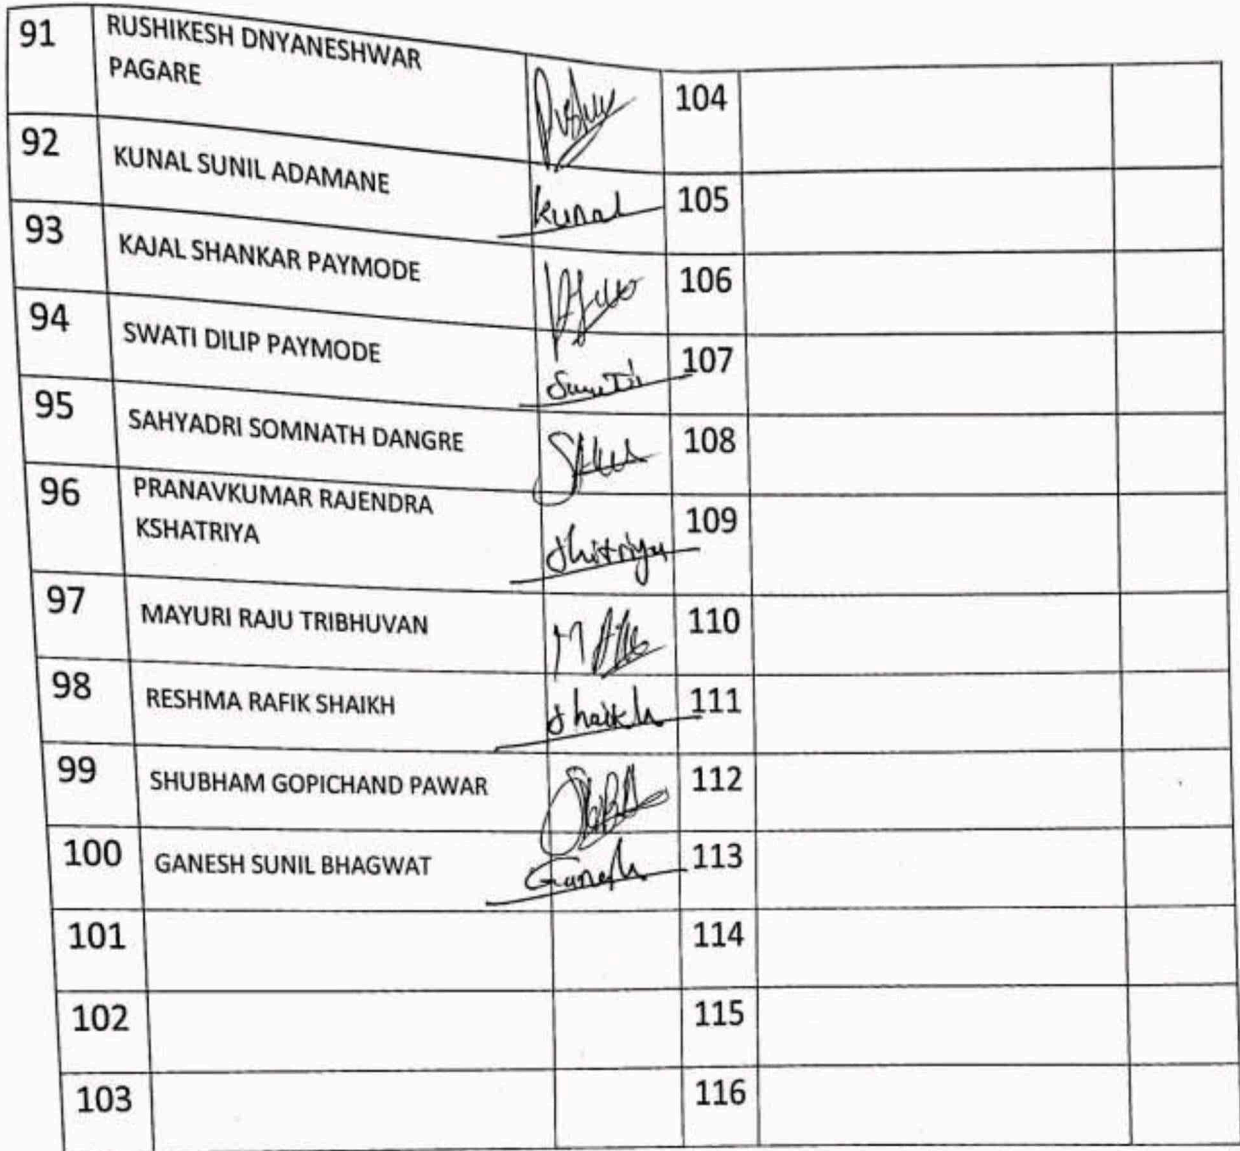 91 RUSHIKESH DNYANESHWAR
PAGARE 104
92 KUNAL SUNIL ADAMANE Kunal 105
93 KAJAL SHANKAR PAYMODE 106
94 SWATI DILIP PAYMODE 107
95 SAHYADRI SOMNATH DANGRE 108
96 PRANAVKUMAR RAJENDRA
KSHATRIYA 109
97 MAYURI RAJU TRIBHUVAN 110
98 RESHMA RAFIK SHAIKH Shaikh 111
99 SHUBHAM GOPICHAND PAWAR 112
100 GANESH SUNIL BHAGWAT Ganesh 113
101 114
102 115
103 116